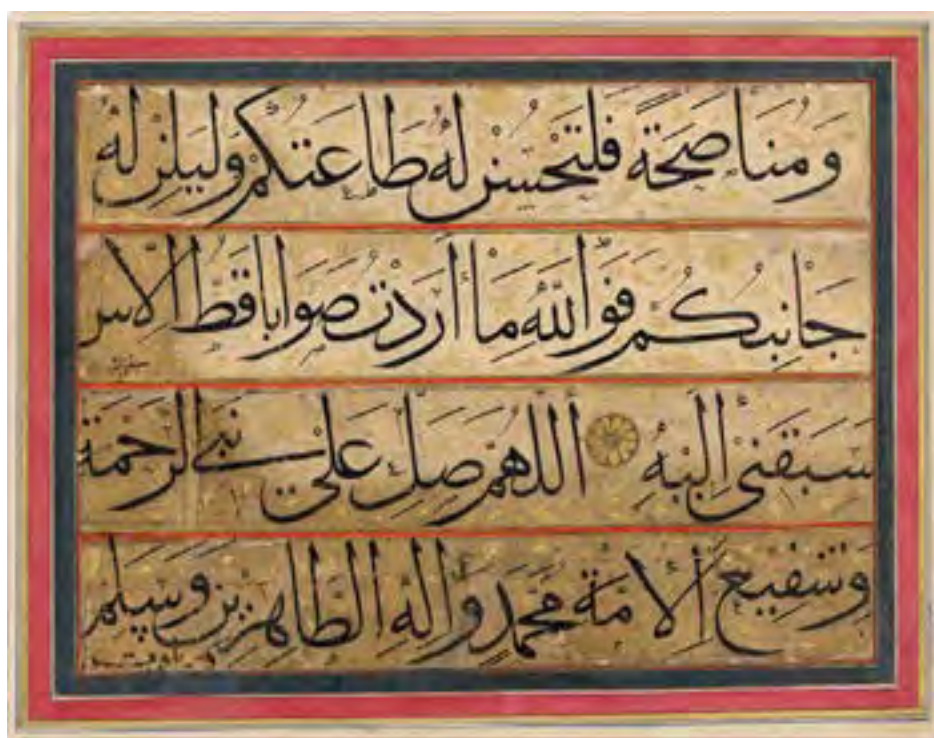 وَمُنَاصَحَةً فَلْتَحْسُنْ لَهُ طَاعَتُكُمْ وَلْيَلِنْ لَهُ
جَانِبُكُمْ فَوَاللّٰهِ مَا أَرَدْتُ صَوَابًا قَطُّ إِلَّا
سَبَقَنِي إِلَيْهِ اَللّٰهُمَّ صَلِّ عَلَى نَبِيِّ الرَّحْمَةِ
وَشَفِيعِ الْأُمَّةِ مُحَمَّدٍ وَآلِهِ الطَّاهِرِينَ وَسَلِّمْ